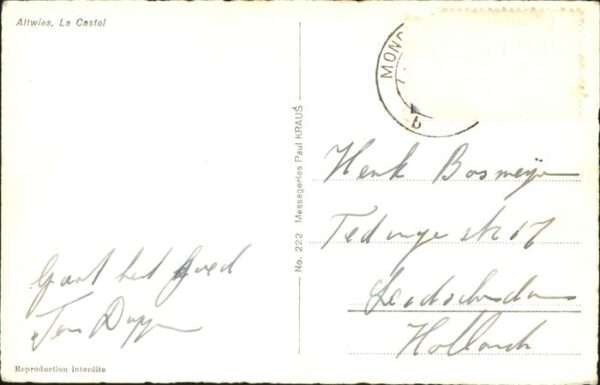 Altwies, Le Castel
MON
b
No. 222 Messageries Paul KRAUS
Henk Bosmeijer
str 17
Leidschendam
Holland
Gaat het goed
Reproduction interdite